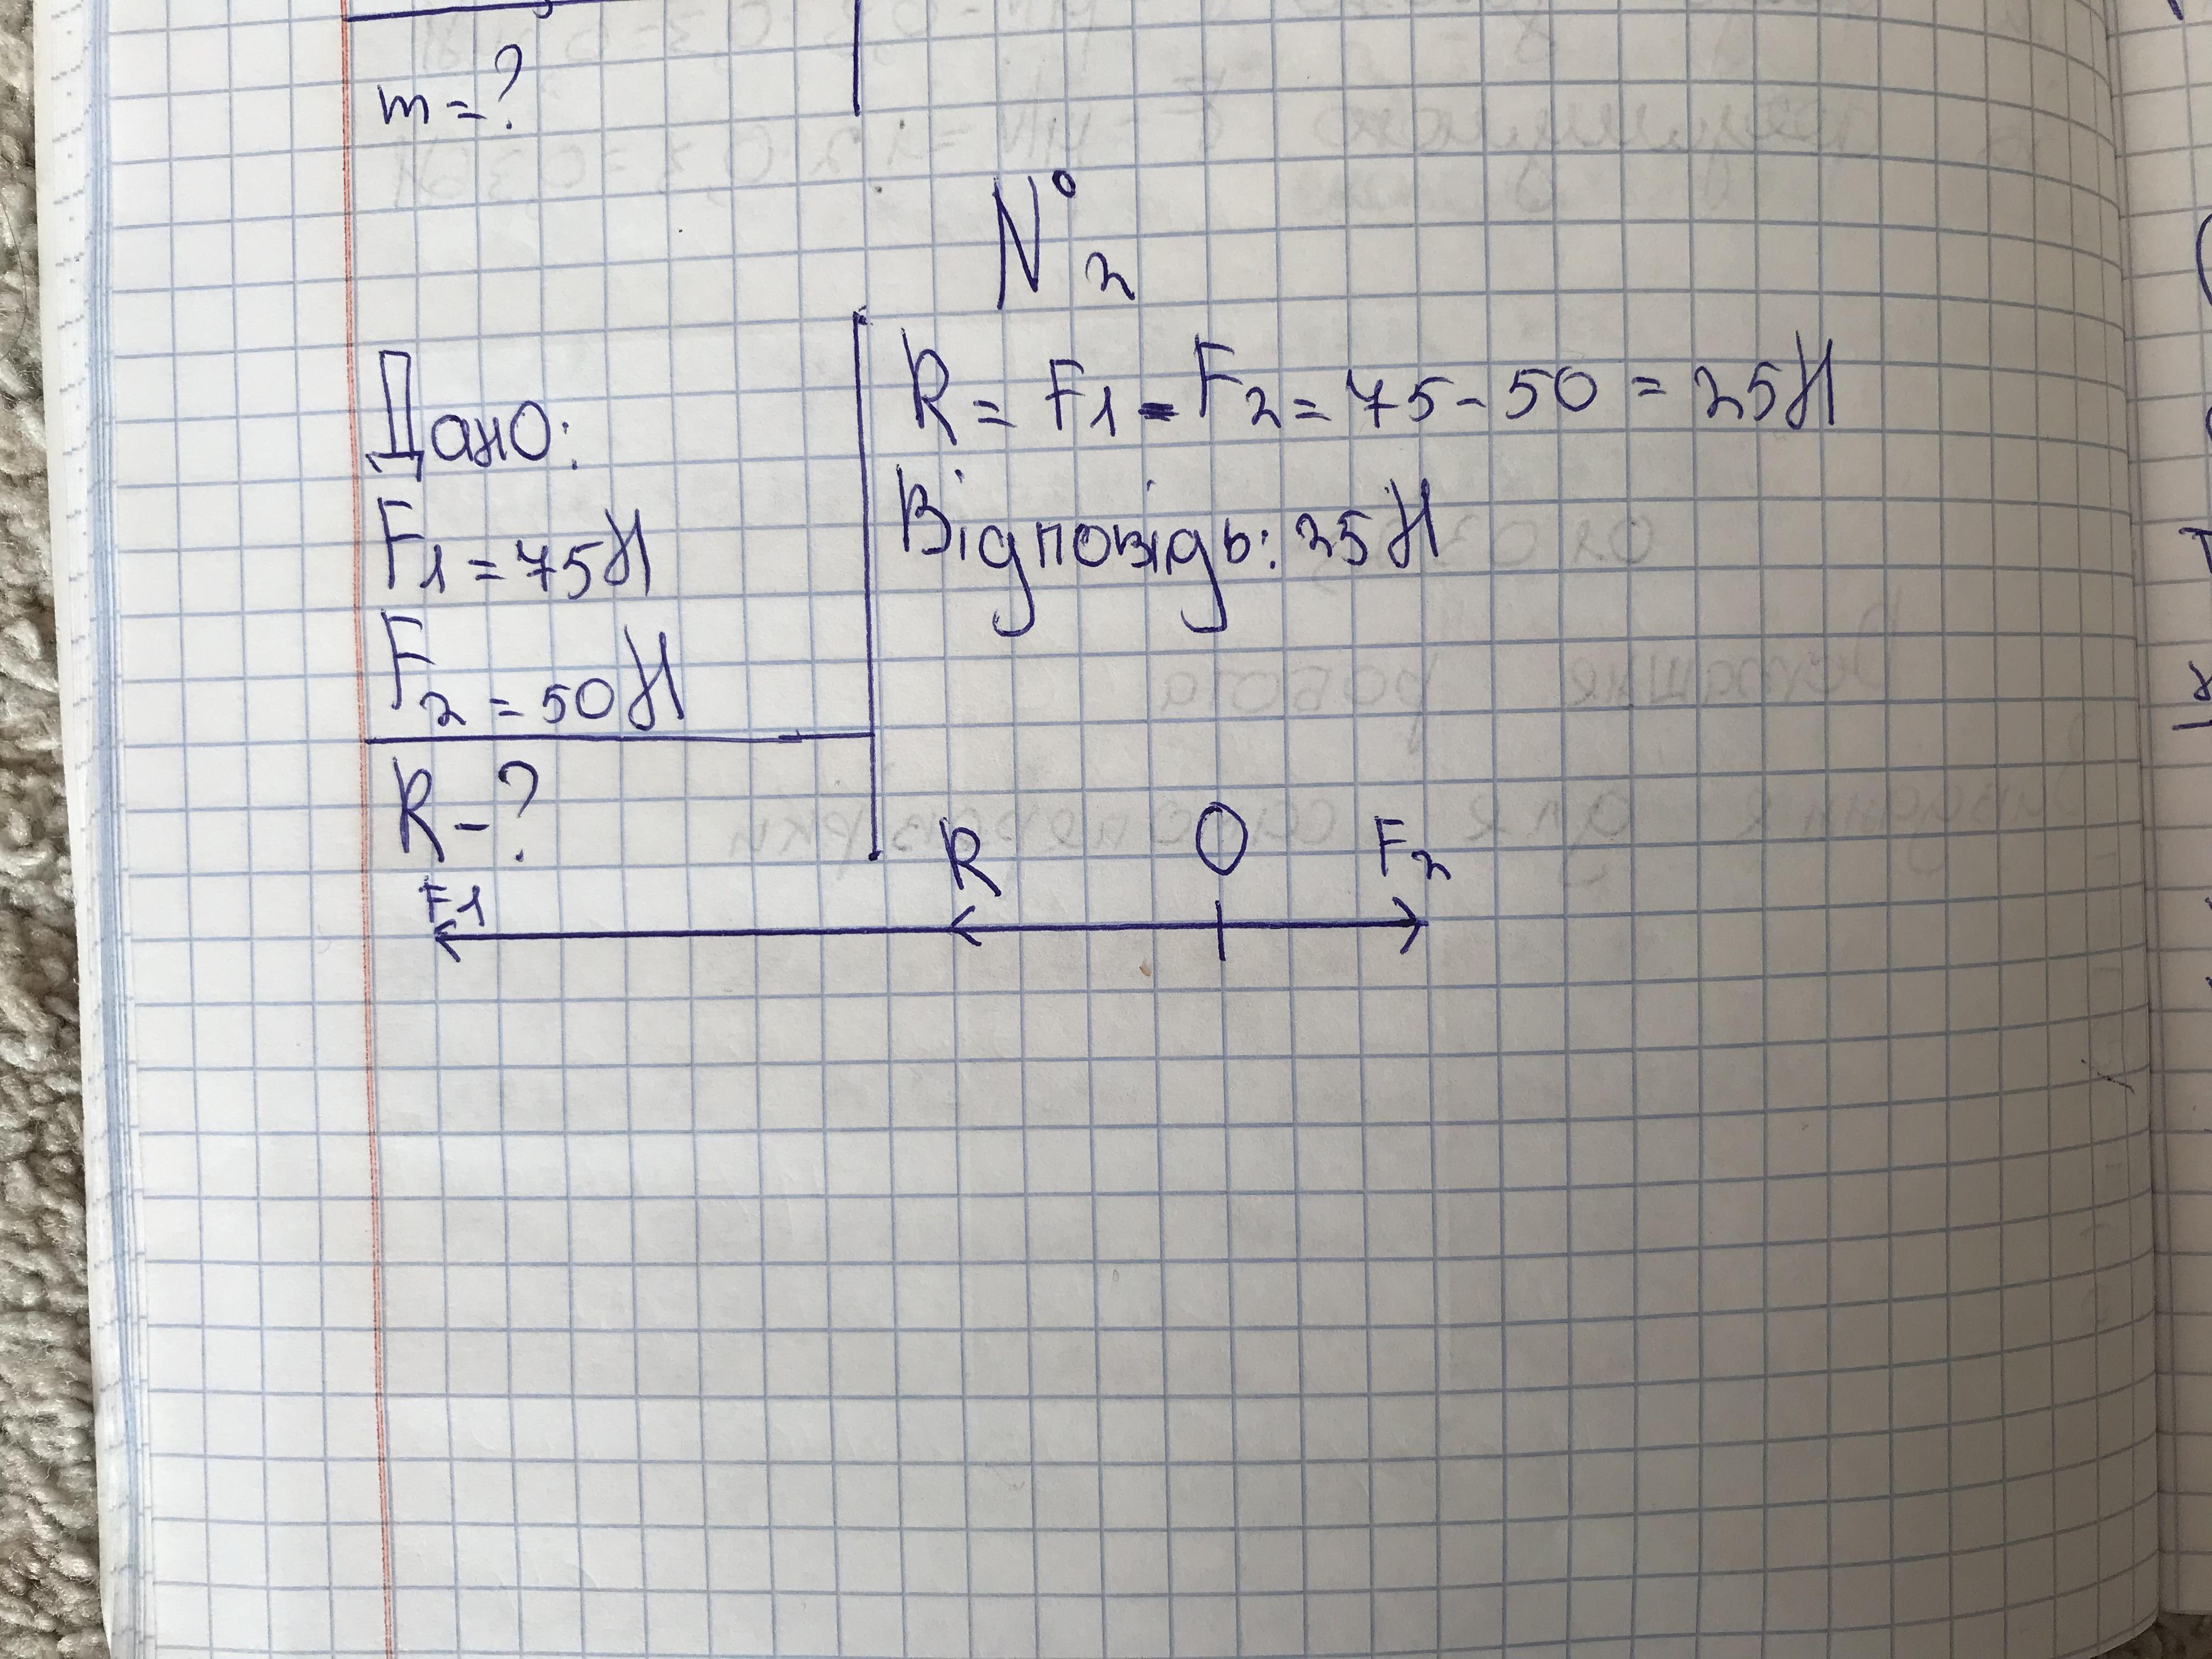 m=?
№2
Дано:
F1=75Н
F2=50Н
R-?
R=F1-F2=75-50=25Н
Відповідь: 25Н
F1 R O F2